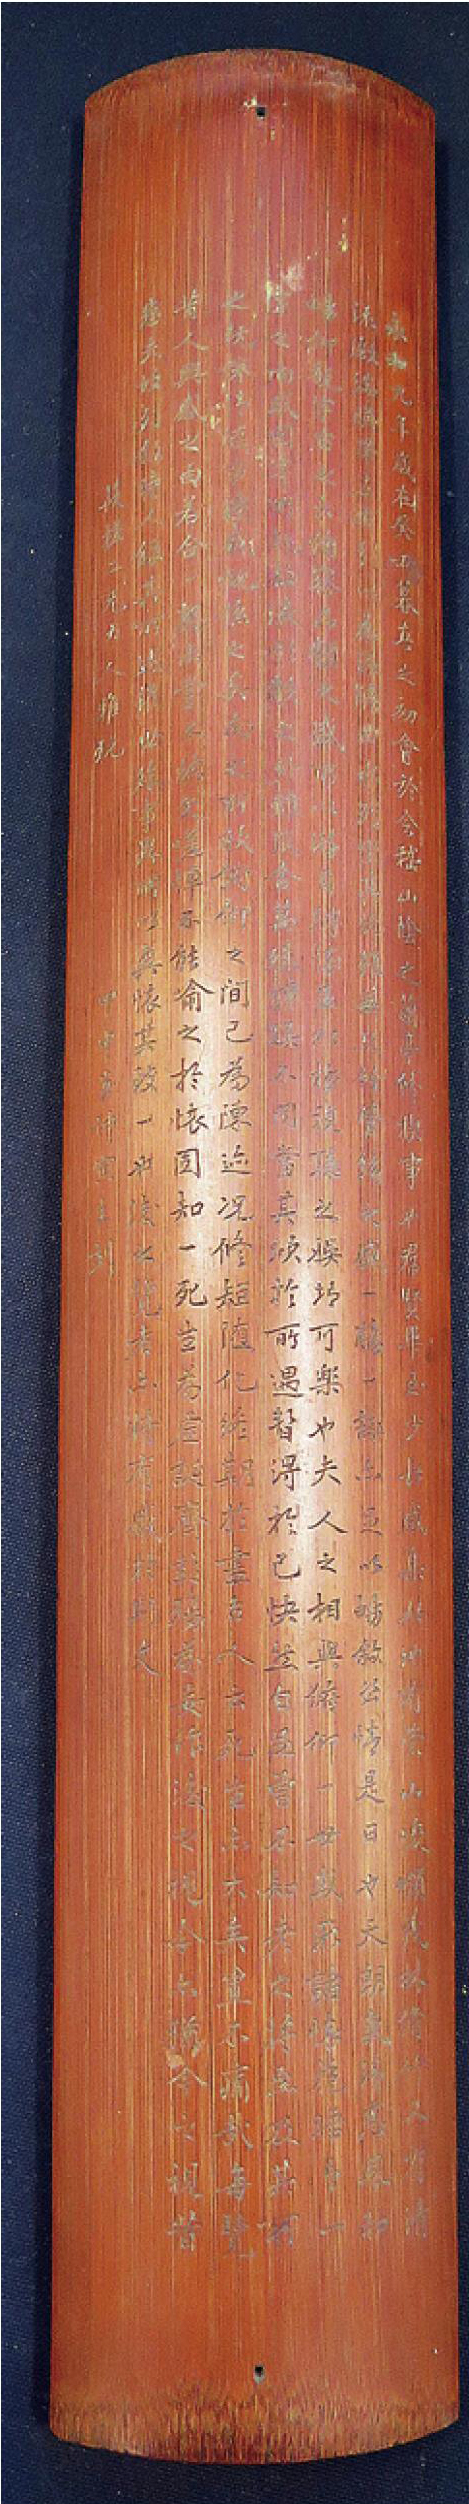 永和九年歲在癸丑暮春之初會於會稽山陰之蘭亭修禊事也群賢畢至少長咸集此地有崇山峻領茂林脩竹又有清
流激湍映帶左右引以為流觴曲水列坐其次雖無絲竹管絃之盛一觴一詠亦足以暢敘幽情是日也天朗氣清惠風和
暢仰觀宇宙之大俯察品類之盛所以遊目騁懷足以極視聽之娛信可樂也夫人之相與俯仰一世或取諸懷抱晤言一
室之內或因寄所託放浪形骸之外雖趣舍萬殊靜躁不同當其欣於所遇暫得於己快然自足曾不知老之將至及其所
之既倦情隨事遷感慨係之矣向之所欣俛仰之間已為陳迹況修短隨化終期於盡古人云死生亦大矣豈不痛哉每覽
昔人興感之由若合一契未嘗不臨文嗟悼不能喻之於懷固知一死生為虛誕齊彭殤為妄作後之視今亦猶今之視昔
悲夫故列敘時人錄其所述雖世殊事異所以興懷其致一也後之覽者亦將有感於斯文
仁兄大人雅玩
甲申刻